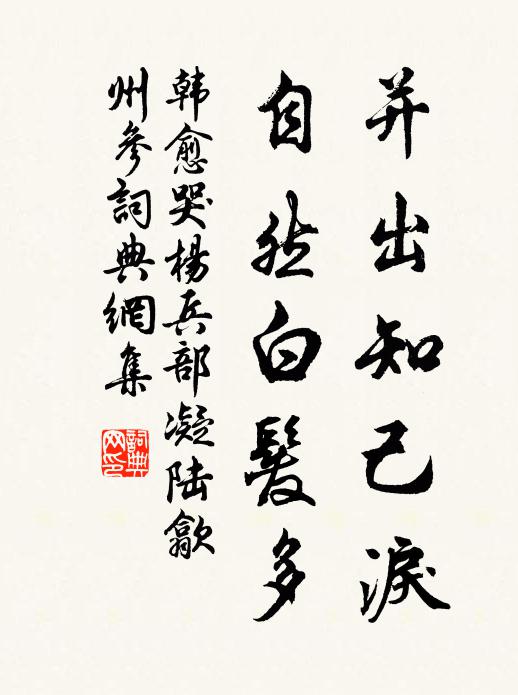 并出知己淚
自然白髮多
韩愈哭楊兵部凝陆歙
州參詞典網集
詞典
网印